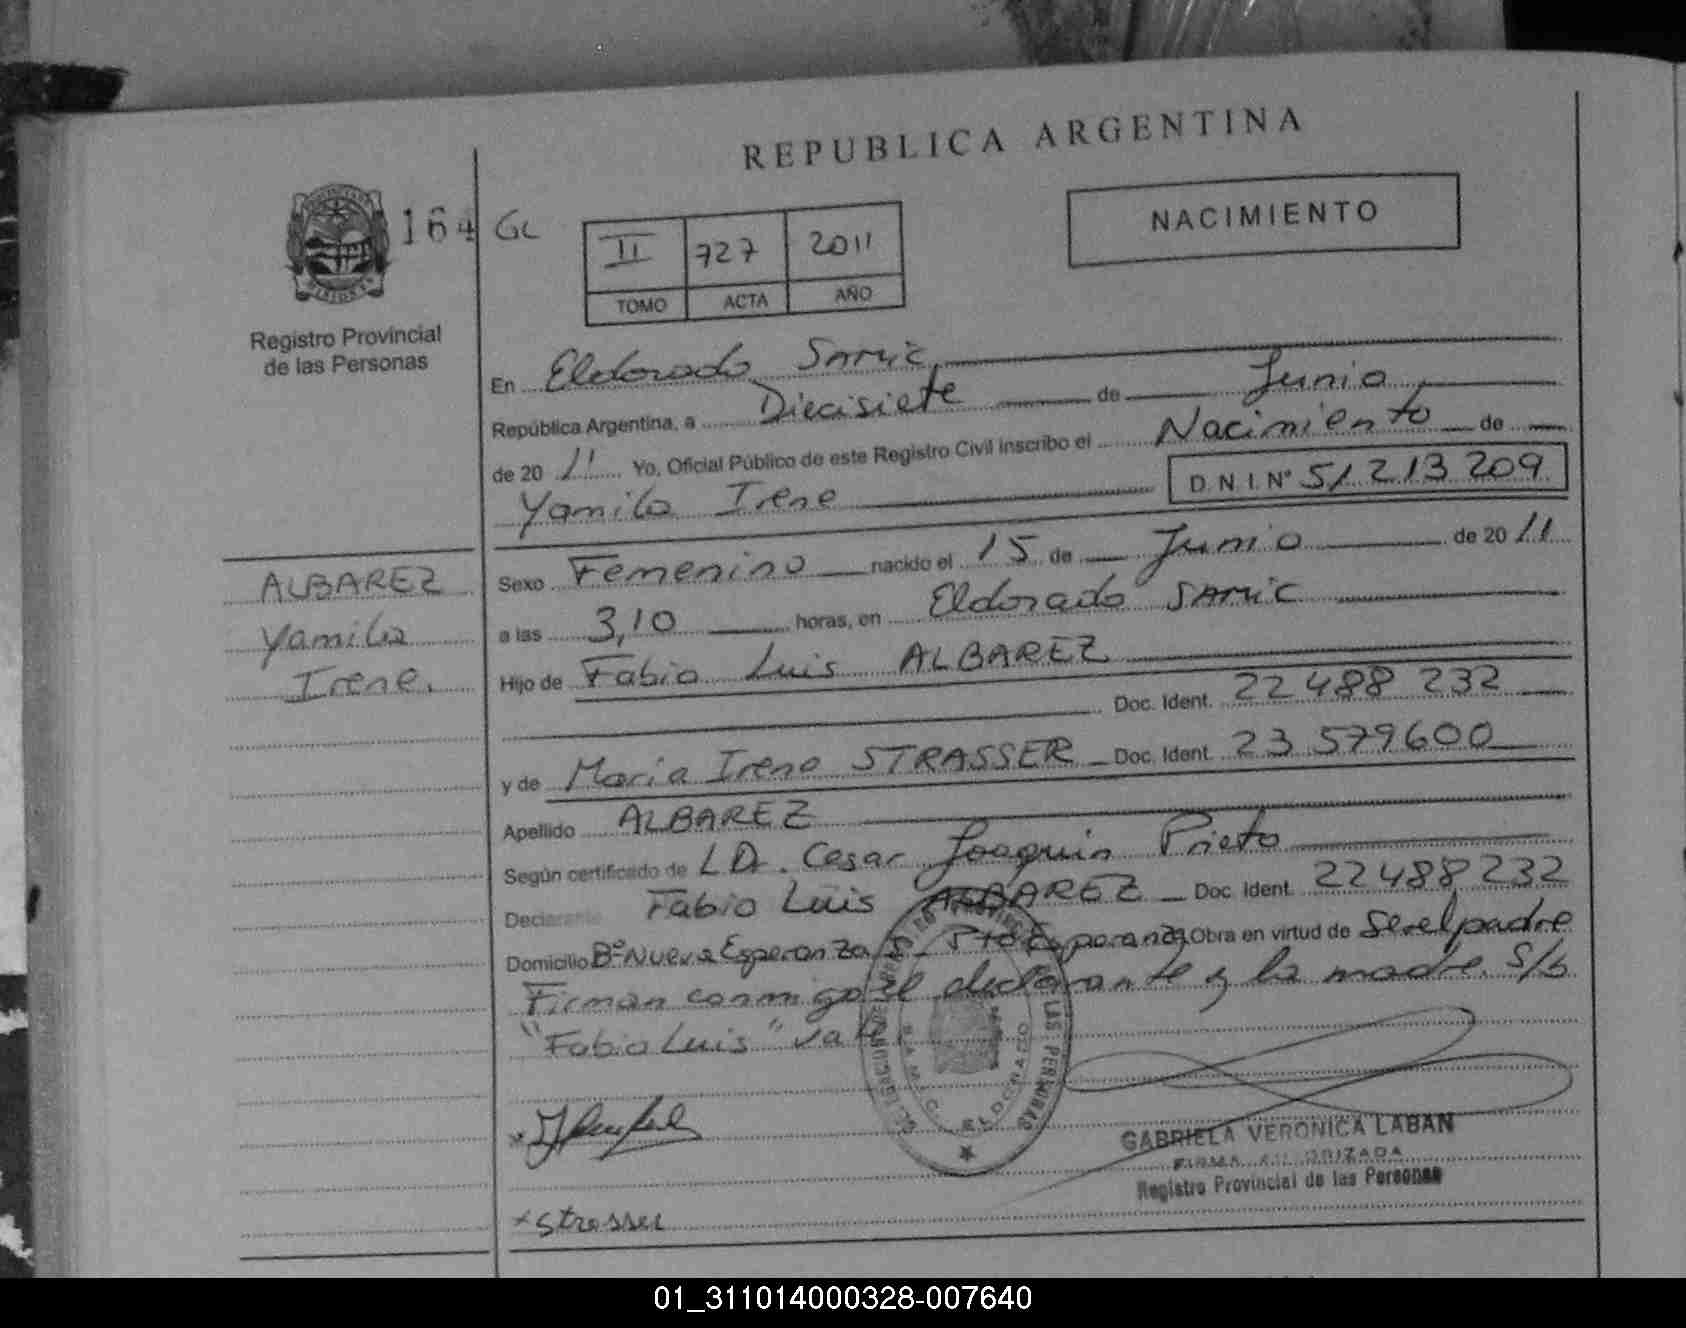 REPUBLICA ARGENTINA
NACIMIENTO
164 GL
II 727 2011
TOMO ACTA AÑO
Registro Provincial
de las Personas
En Eldorado SAMIC
República Argentina, a Diecisiete de Junio
de 20 11 Yo, Oficial Público de este Registro Civil inscribo el Nacimiento de
Yamila Irene D.N.I.Nº 51 213 209
Sexo Femenino nacido el 15 de Junio de 20 11
a las 3,10 horas, en Eldorado SAMIC
Hijo de Fabio Luis ALBAREZ
Doc. Ident. 22 488 232
y de Maria Irene STRASSER Doc. Ident. 23 579600
Apellido ALBAREZ
Según certificado de LD. Cesar Joaquin Prieto
Declarante Fabio Luis ALBAREZ Doc. Ident. 22488232
Domicilio Bº Nueva Esperanza Pto Esperanza Obra en virtud de Ser el padre
Firman conmigo el declarante y la madre. S/b
"Fabio Luis" vale
ALBAREZ
Yamila
Irene.
LAS PERSONAS
S.A.M.I.C. ELDORADO
x Strasser
GABRIELA VERONICA LABAN
FIRMA AUTORIZADA
Registro Provincial de las Personas
01_311014000328-007640